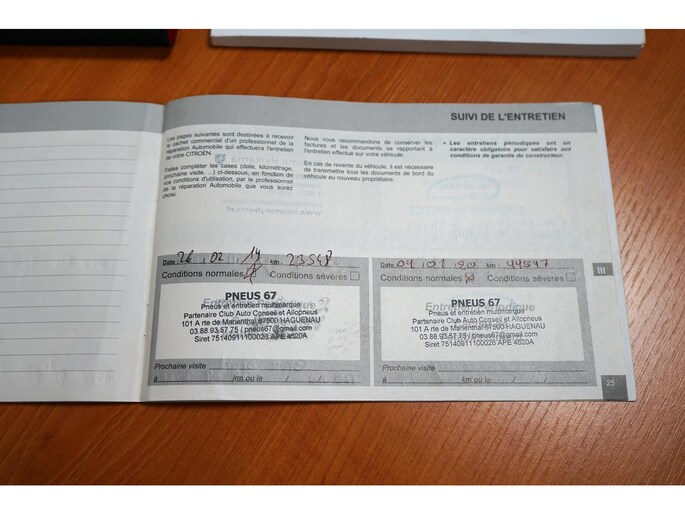 SUIVI DE L'ENTRETIEN
Les pages suivantes sont destinées à recevoir
le cachet commercial d'un professionnel de la
réparation Automobile qui effectuera l'entretien
de votre CITROËN.
Faites compléter les cases (date, kilométrage,
prochaine visite, ...) ci-dessous, en fonction de
vos conditions d'utilisation, par le professionnel
de la réparation Automobile que vous aurez
choisi.
Nous vous recommandons de conserver les
factures et les documents se rapportant à
l'entretien effectué sur votre véhicule.
En cas de revente du véhicule, il est nécessaire
de transmettre tous les documents de bord du
véhicule au nouveau propriétaire.
• Les entretiens périodiques ont un
caractère obligatoire pour satisfaire aux
conditions de garantie du constructeur.
Date : 26 . 02 . 19 km : 23548
Conditions normales Conditions sévères
PNEUS 67
Pneus et entretien multimarque
Partenaire Club Auto Conseil et Allopneus
101 A rte de Marienthal 67500 HAGUENAU
03.88.93.67.75 / pneus67@gmail.com
Siret 75140911100025 APE 4520A
Prochaine visite
à km ou le / /
Date : 04 . 01 . 20 km : 44547
Conditions normales Conditions sévères
PNEUS 67
Pneus et entretien multimarque
Partenaire Club Auto Conseil et Allopneus
101 A rte de Marienthal 67500 HAGUENAU
03.88.93.67.75 / pneus67@gmail.com
Siret 75140911100025 APE 4520A
Prochaine visite
à km ou le / /
III
25